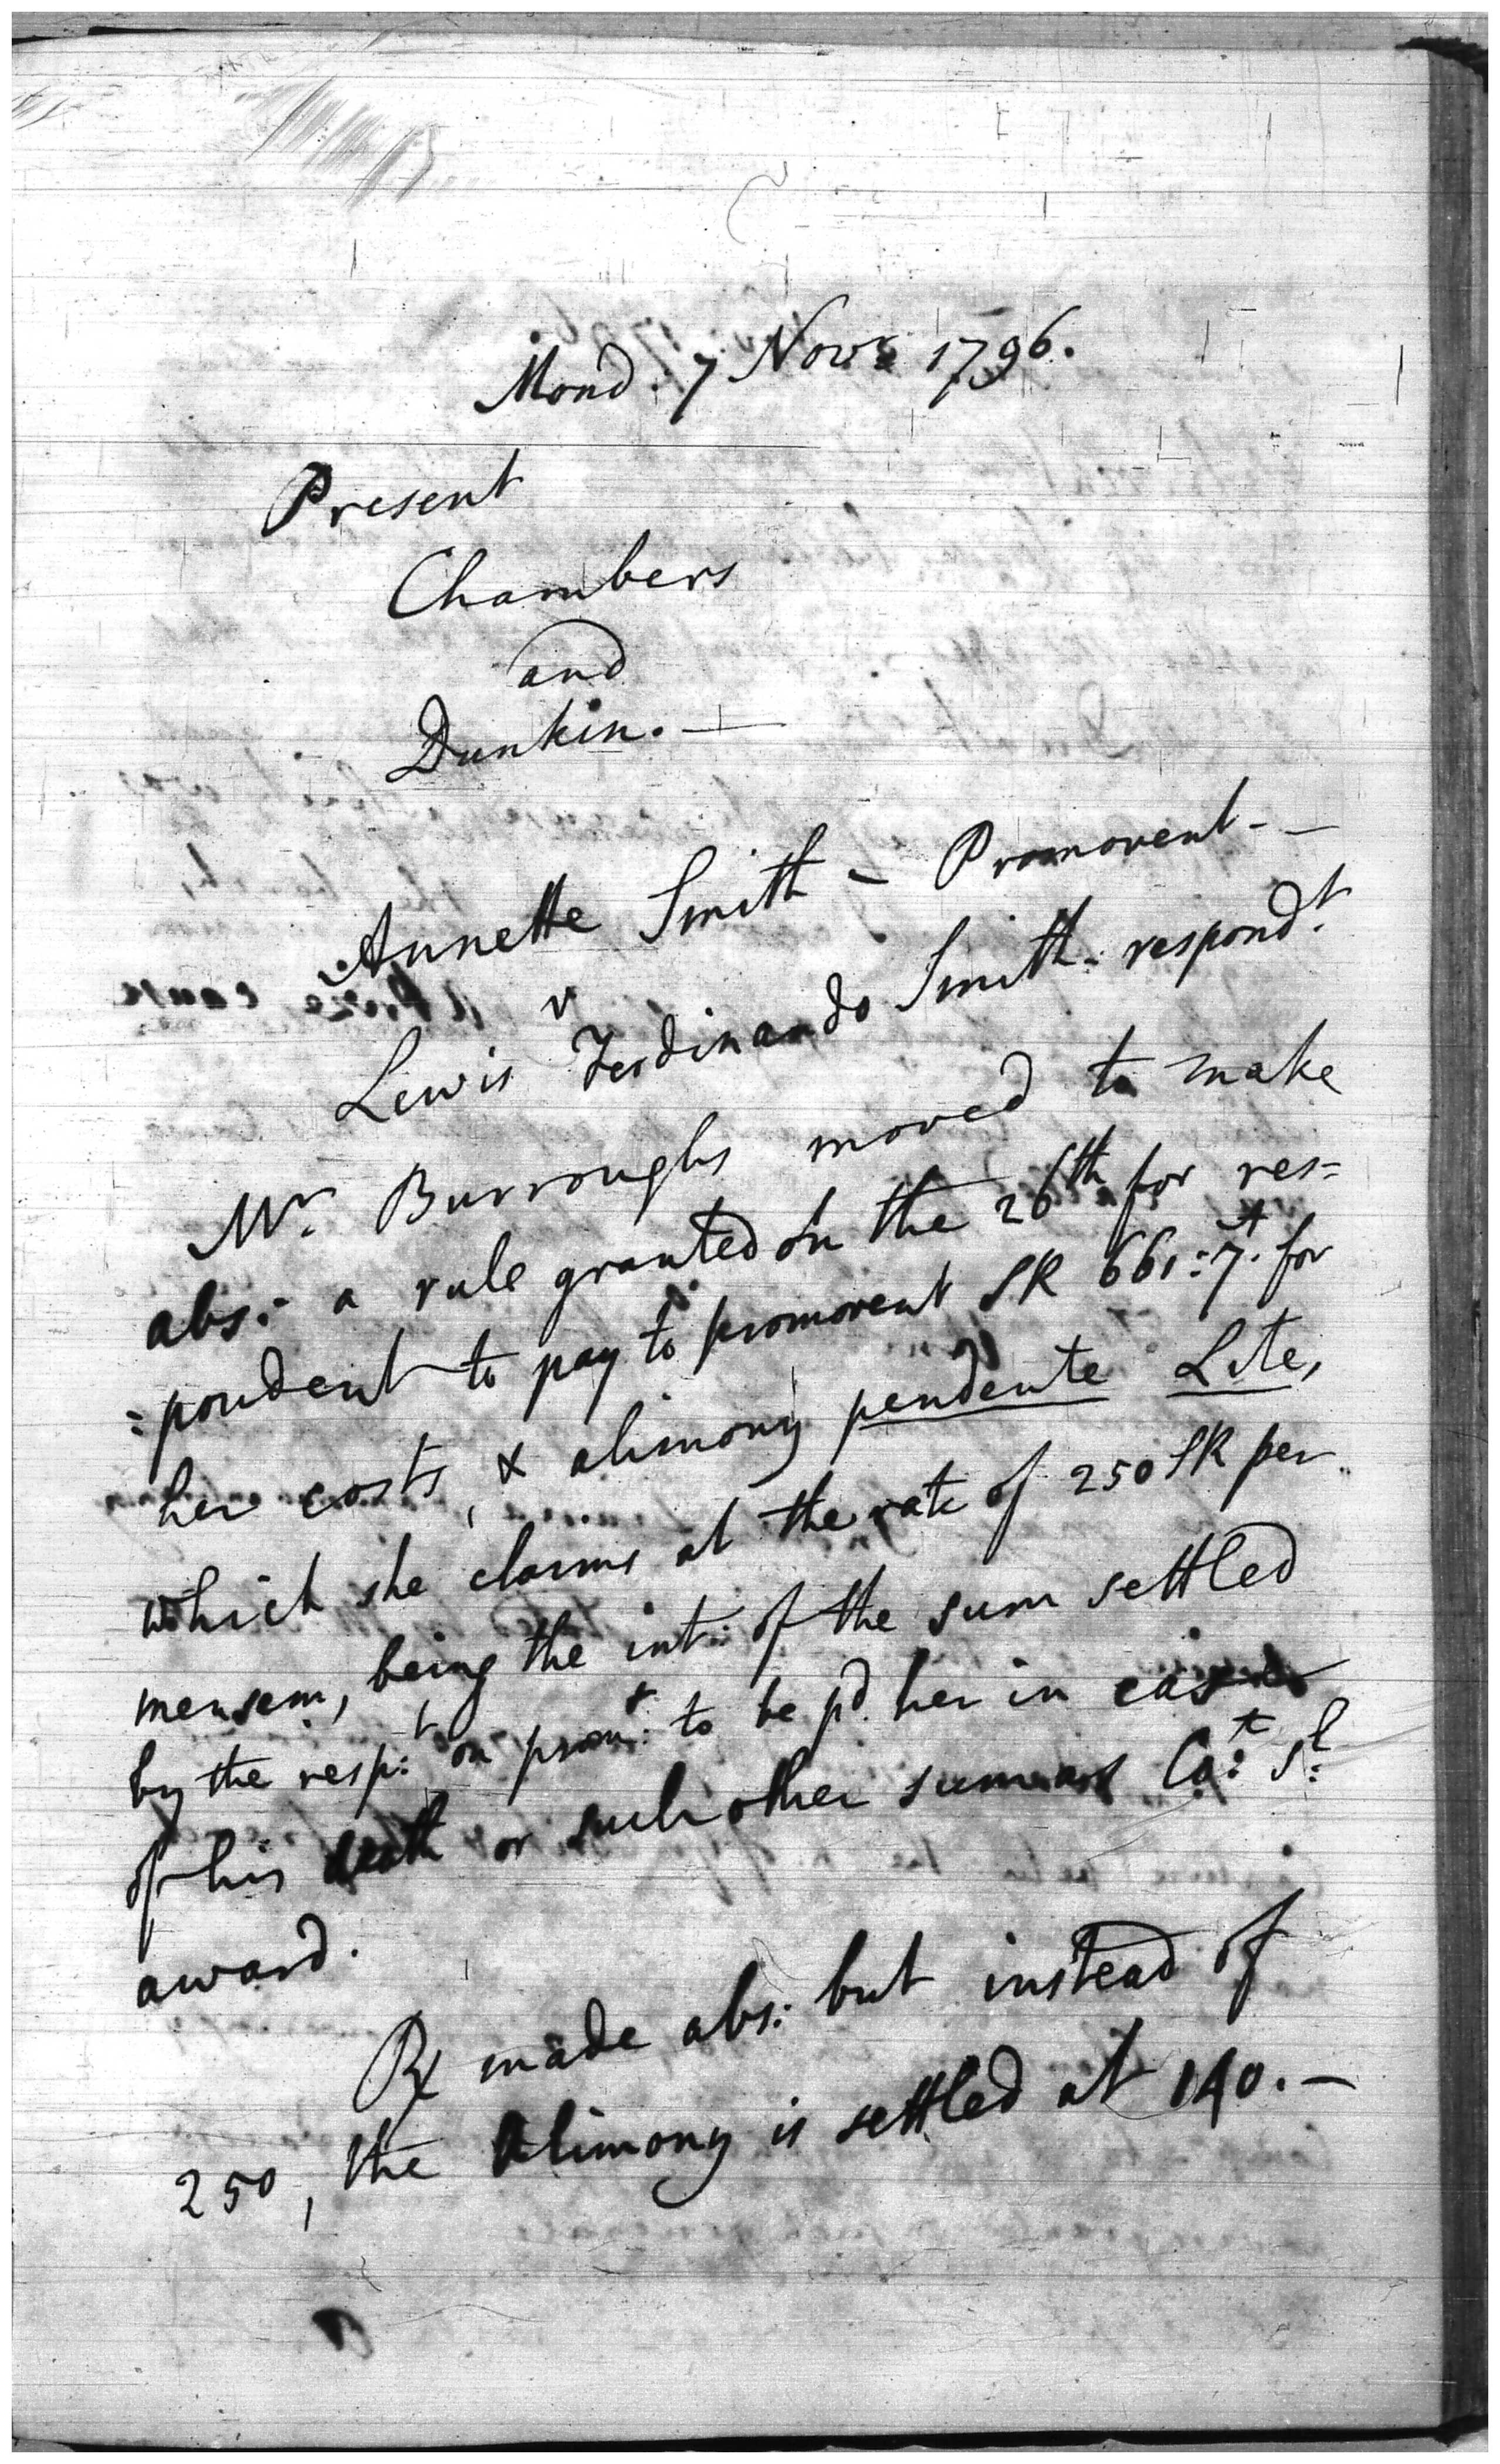 Mond. 7 Novr 1796.
Present
Chambers
and
Dunkin. —
Annette Smith – Promovent - -
v
Lewis Ferdinando Smith - respondt.
Mr. Burroughs moved to make
abs: a rule granted on the 26th for res=
=pondent to pay to promovent SR 661:7. for
her costs, & alimony pendente Lite,
which she claims at the rate of 250 SR per
mensem, being the int: of the sum settled
by the resp:t on prom:t to be pd. her in case
of his death or such other sum as Co:t s:l
award.
R made abs: but instead of
250, the Alimony is settled at 140. —